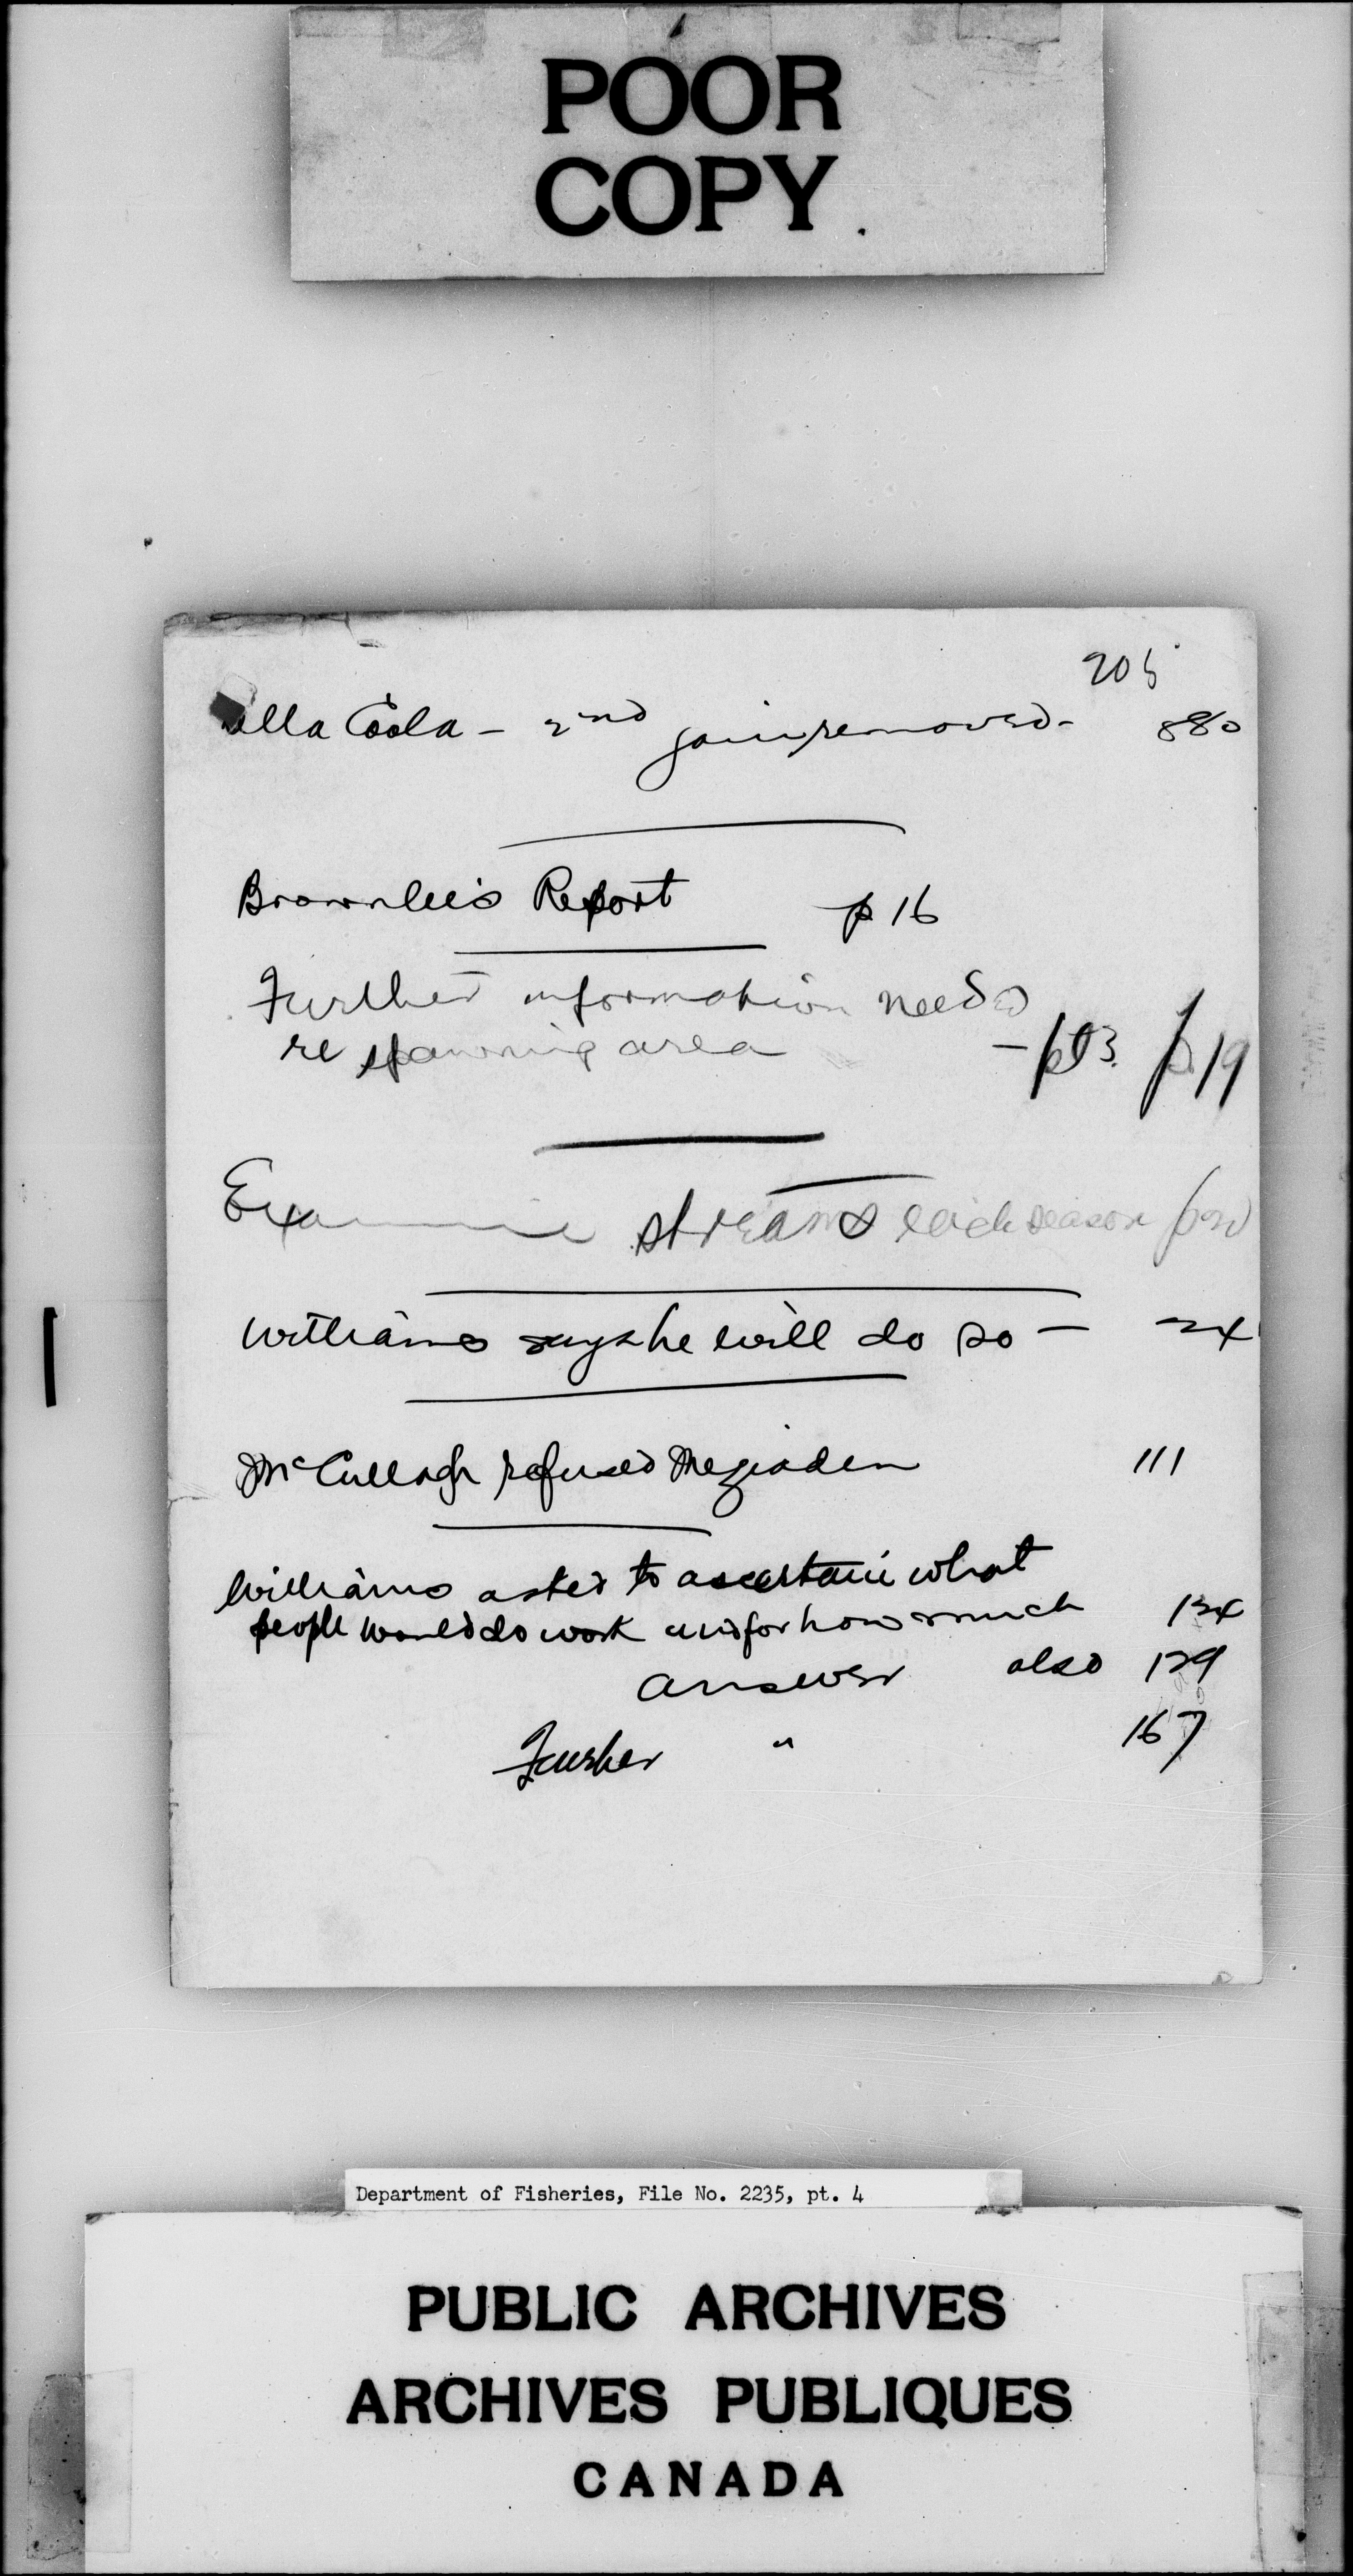 POOR
COPY
205
ella Coola - 2nd jam removed - 880
Brownlee's Report p 16
Further information needed
re spawning area - pt 3. p 19
Examine streams each season
Williams says he will do so - 24
McCullagh refused
111
Williams asked to ascertain what
people would do work and for how much 124
answer also 129
Further " 167
Department of Fisheries, File No. 2235, pt. 4
PUBLIC ARCHIVES
ARCHIVES PUBLIQUES
CANADA